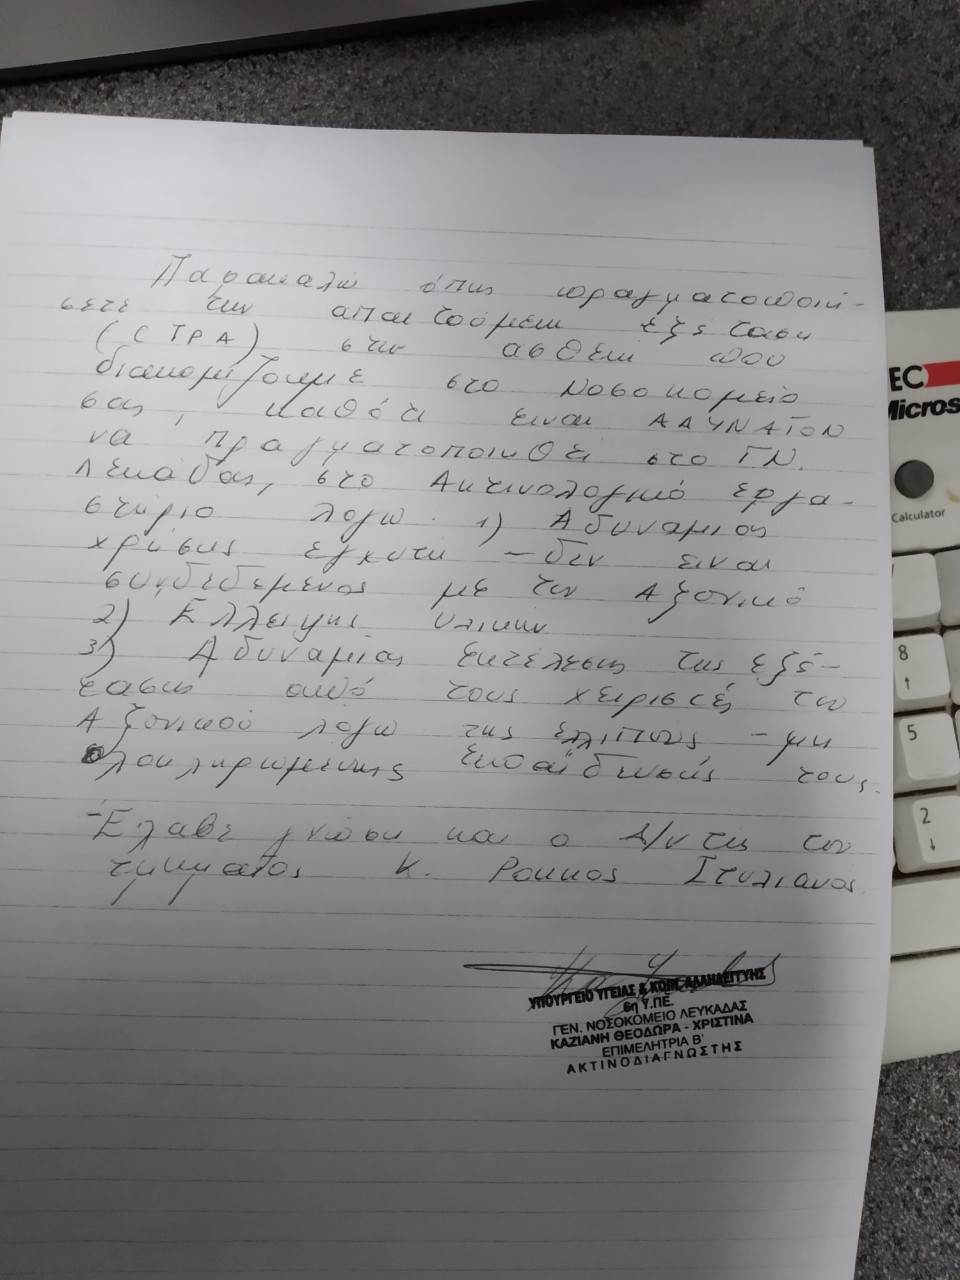 Παρακαλώ όπως πραγματοποιή-
σετε την απαιτούμενη εξέταση
(CTPA) στην ασθενή που
διακομίζουμε στο Νοσοκομείο
σας, καθότι είναι ΑΔΥΝΑΤΟΝ
να πραγματοποιηθεί στο Γ.Ν.
Λευκάδας, στο Ακτινολογικό εργα-
στήριο λόγω 1) Αδυναμίας
χρήσης εγχυτή - δεν είναι
συνδεδεμένος με τον Αξονικό
2) Έλλειψης υλικών
3) Αδυναμίας εκτέλεσης της εξέ-
τασης από τους χειριστές του
Αξονικού λόγω της ελλιπούς - μη
ολοκληρωμένης εκπαίδευσής τους.
- Έλαβε γνώση και ο Δ/ντής του
τμήματος κ. Ρόκκος Στυλιανός.
ΥΠΟΥΡΓΕΙΟ ΥΓΕΙΑΣ & ΚΟΙΝ. ΑΛΛΗΛΕΓΓΥΗΣ
6η Υ.ΠΕ.
ΓΕΝ. ΝΟΣΟΚΟΜΕΙΟ ΛΕΥΚΑΔΑΣ
ΚΑΖΙΑΝΗ ΘΕΟΔΩΡΑ - ΧΡΙΣΤΙΝΑ
ΕΠΙΜΕΛΗΤΡΙΑ Β'
ΑΚΤΙΝΟΔΙΑΓΝΩΣΤΗΣ
EC
Micros
Calculator
8
5
2